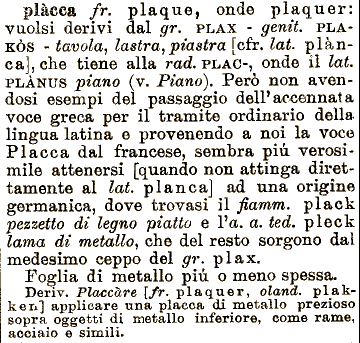 plàcca fr. plaque, onde plaquer:
vuolsi derivi dal gr. PLAX - genit. PLA-
KÒS - tavola, lastra, piastra [cfr. lat. plàn-
ca], che tiene alla rad. PLAC-, onde il lat.
PLÀNUS piano (v. Piano). Però non aven-
dosi esempi del passaggio dell'accennata
voce greca per il tramite ordinario della
lingua latina e provenendo a noi la voce
Placca dal francese, sembra più verosi-
mile attenersi [quando non attinga diret-
tamente al lat. planca] ad una origine
germanica, dove trovasi il fiamm. plack
pezzetto di legno piatto e l'a. a. ted. pleck
lama di metallo, che del resto sorgono dal
medesimo ceppo del gr. plax.
Foglia di metallo più o meno spessa.
Deriv. Placcàre [fr. plaquer, oland. plak-
ken] applicare una placca di metallo prezioso
sopra oggetti di metallo inferiore, come rame,
acciaio e simili.